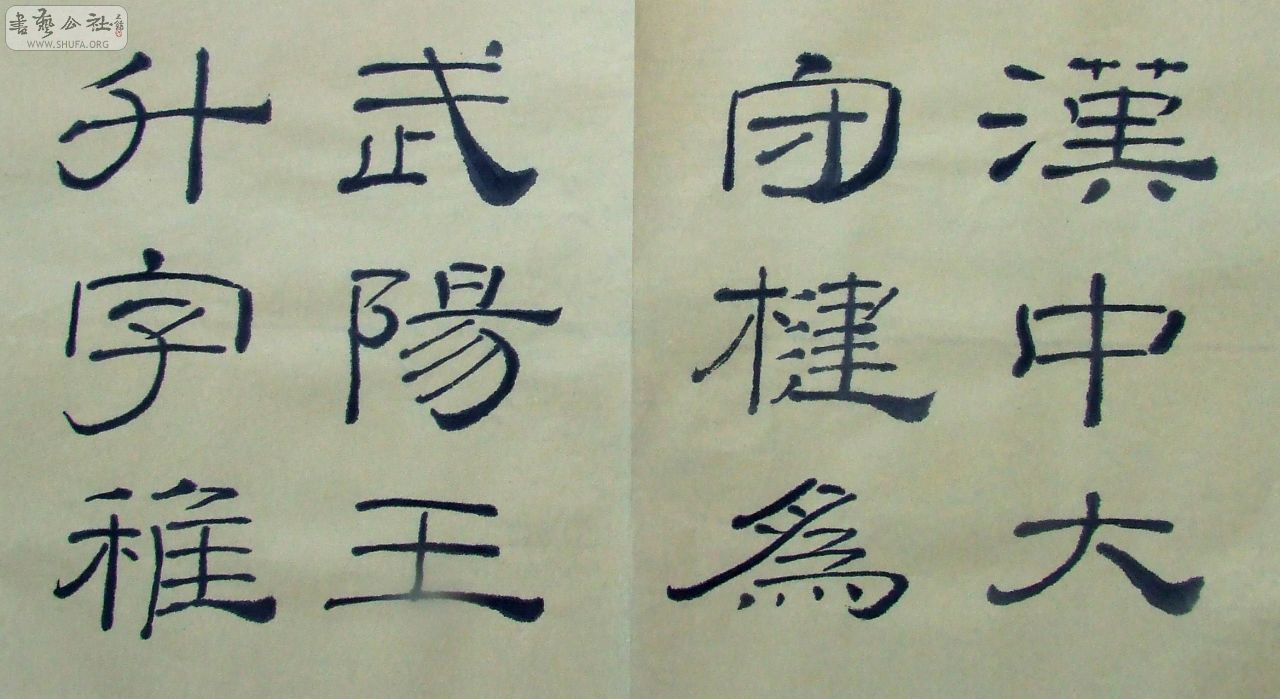 漢中大
守楗爲
武陽王
升字稚
書藝公社
WWW.SHUFA.ORG